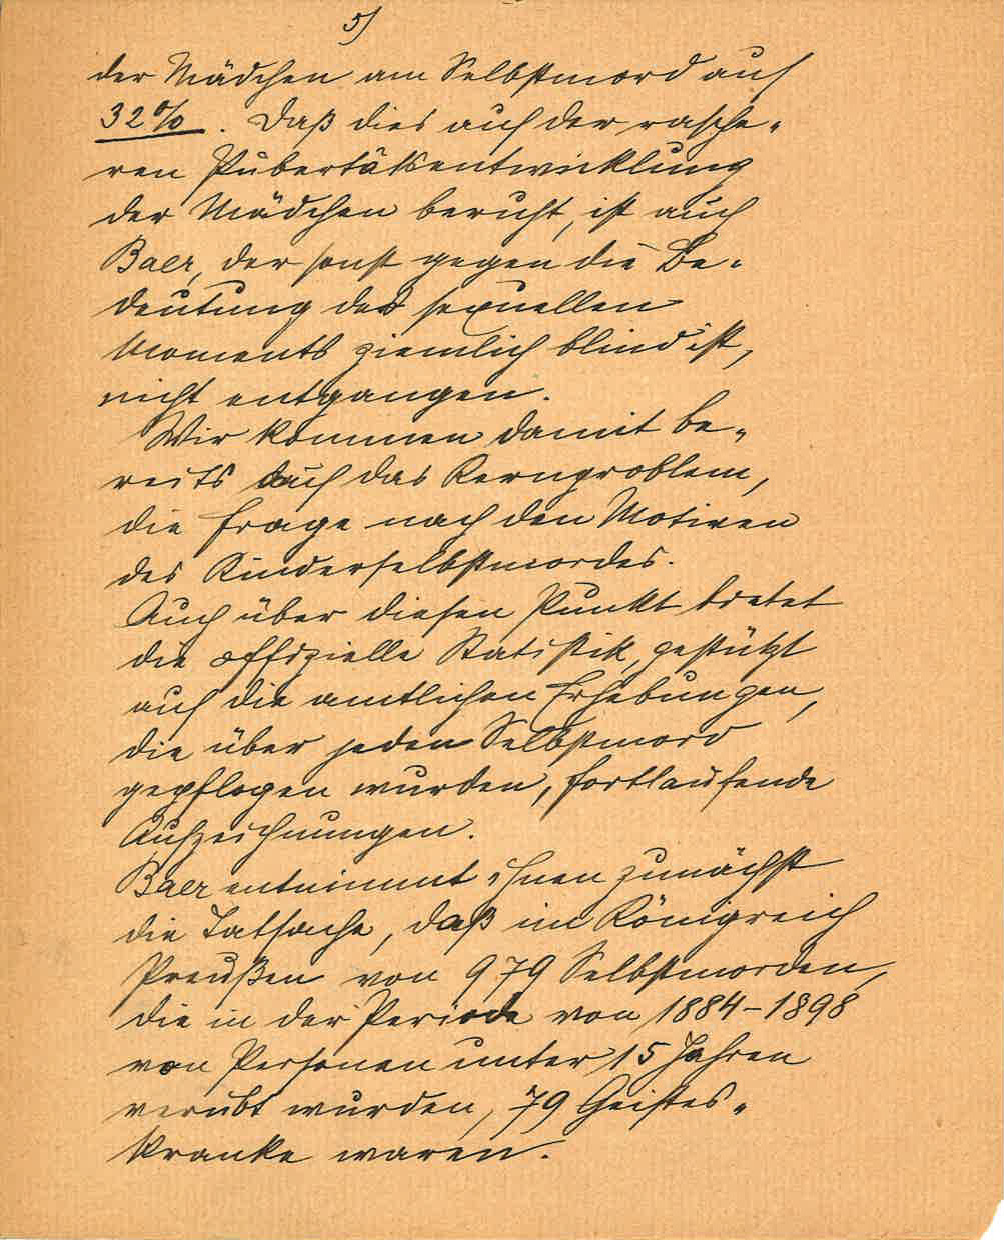 5)
der Mädchen am Selbstmord auf
32%. Daß dies auf der rasche-
ren Pubertätsentwicklung
der Mädchen beruht, ist auch
Baer, der sonst gegen die Be-
deutung des sexuellen
Moments ziemlich blind ist,
nicht entgangen.
Wir kommen damit be-
reits auf das Kernproblem,
die Frage nach den Motiven
des Kinderselbstmordes.
Auch über diesen Punkt bietet
die offizielle Statistik, gestützt
auf die amtlichen Erhebungen,
die über jeden Selbstmord
gepflogen wurden, fortlaufende
Aufzeichnungen.
Baer entnimmt ihnen zunächst
die Tatsache, daß im Königreich
Preußen von 979 Selbstmorden,
die in der Periode von 1884-1898
von Personen unter 15 Jahren
verübt wurden, 79 Geistes-
kranke waren.